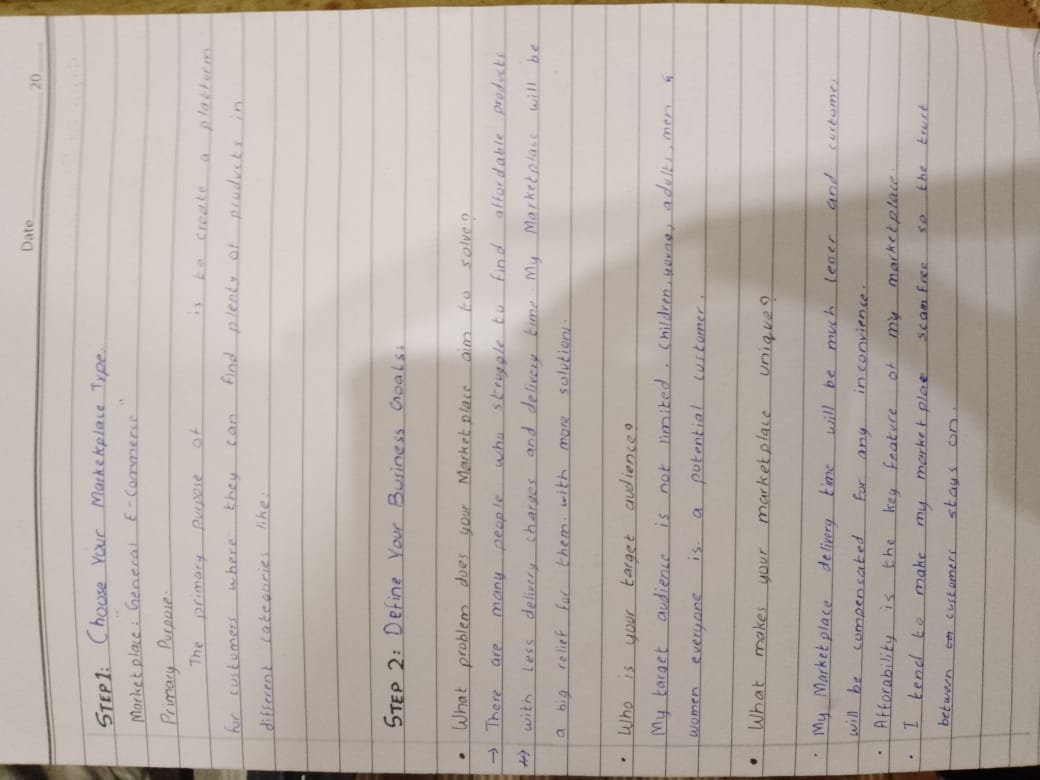 Date 20
STEP 1: Choose Your Marketplace Type.
Marketplace: General E-Commerce
Primary Purpose.
The primary purpose of is to create a platform
for customers where they can find plenty of products in
different categories like:
STEP 2: Define Your Business Goals:
• What problem does your Marketplace aim to solve?
→ There are many people who struggle to find affordable products
with Less delivery charges and delivery time. My Marketplace will be
a big relief for them. with more solutions.
• Who is your target audience?
My target audience is not limited. Children, young, adults, men &
women everyone is a potential customer.
• What makes your marketplace unique?
• My Marketplace delivery time will be much lesser and customer
will be compensated for any inconvience.
• Afforability is the key feature of my marketplace.
• I tend to make my market place scam free so the trust
between customers stays on.